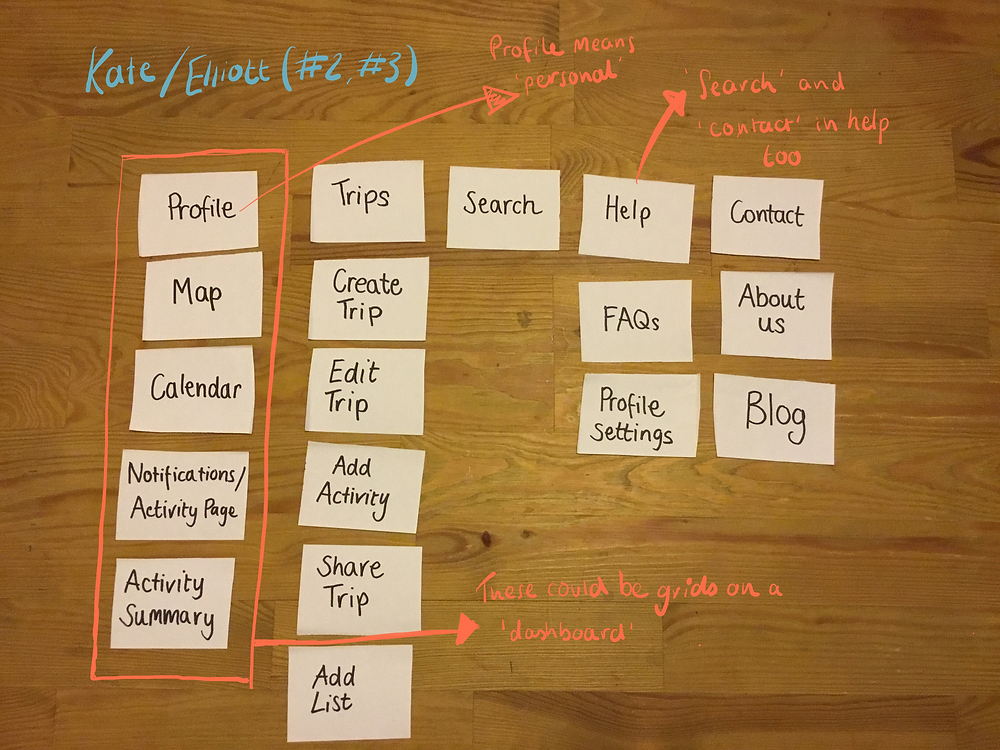 Kate/Elliott (#2, #3)
Profile means
'personal'
'Search' and
'contact' in help
too
Profile
Map
Calendar
Notifications/
Activity Page
Activity
Summary
Trips
Create
Trip
Edit
Trip
Add
Activity
Share
Trip
Add
List
Search
Help
FAQs
Profile
Settings
Contact
About
us
Blog
These could be grids on a
'dashboard'